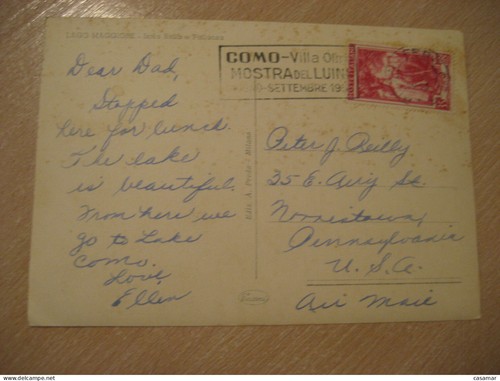 LAGO MAGGIORE - Isola Bella e Pallanza
COMO - Villa Olmo
MOSTRA DEL LUINI
SETTEMBRE 195
Dear Dad,
Stopped
here for lunch.
The lake
is beautiful.
From here we
go to Lake
Como.
Love,
Ellen
Ediz. A. Milano
Peter J. Reilly
35 E. Airy St.
Norristown,
Pennsylvania
U. S. A.
Air Mail
www.delcampe.net
casamar